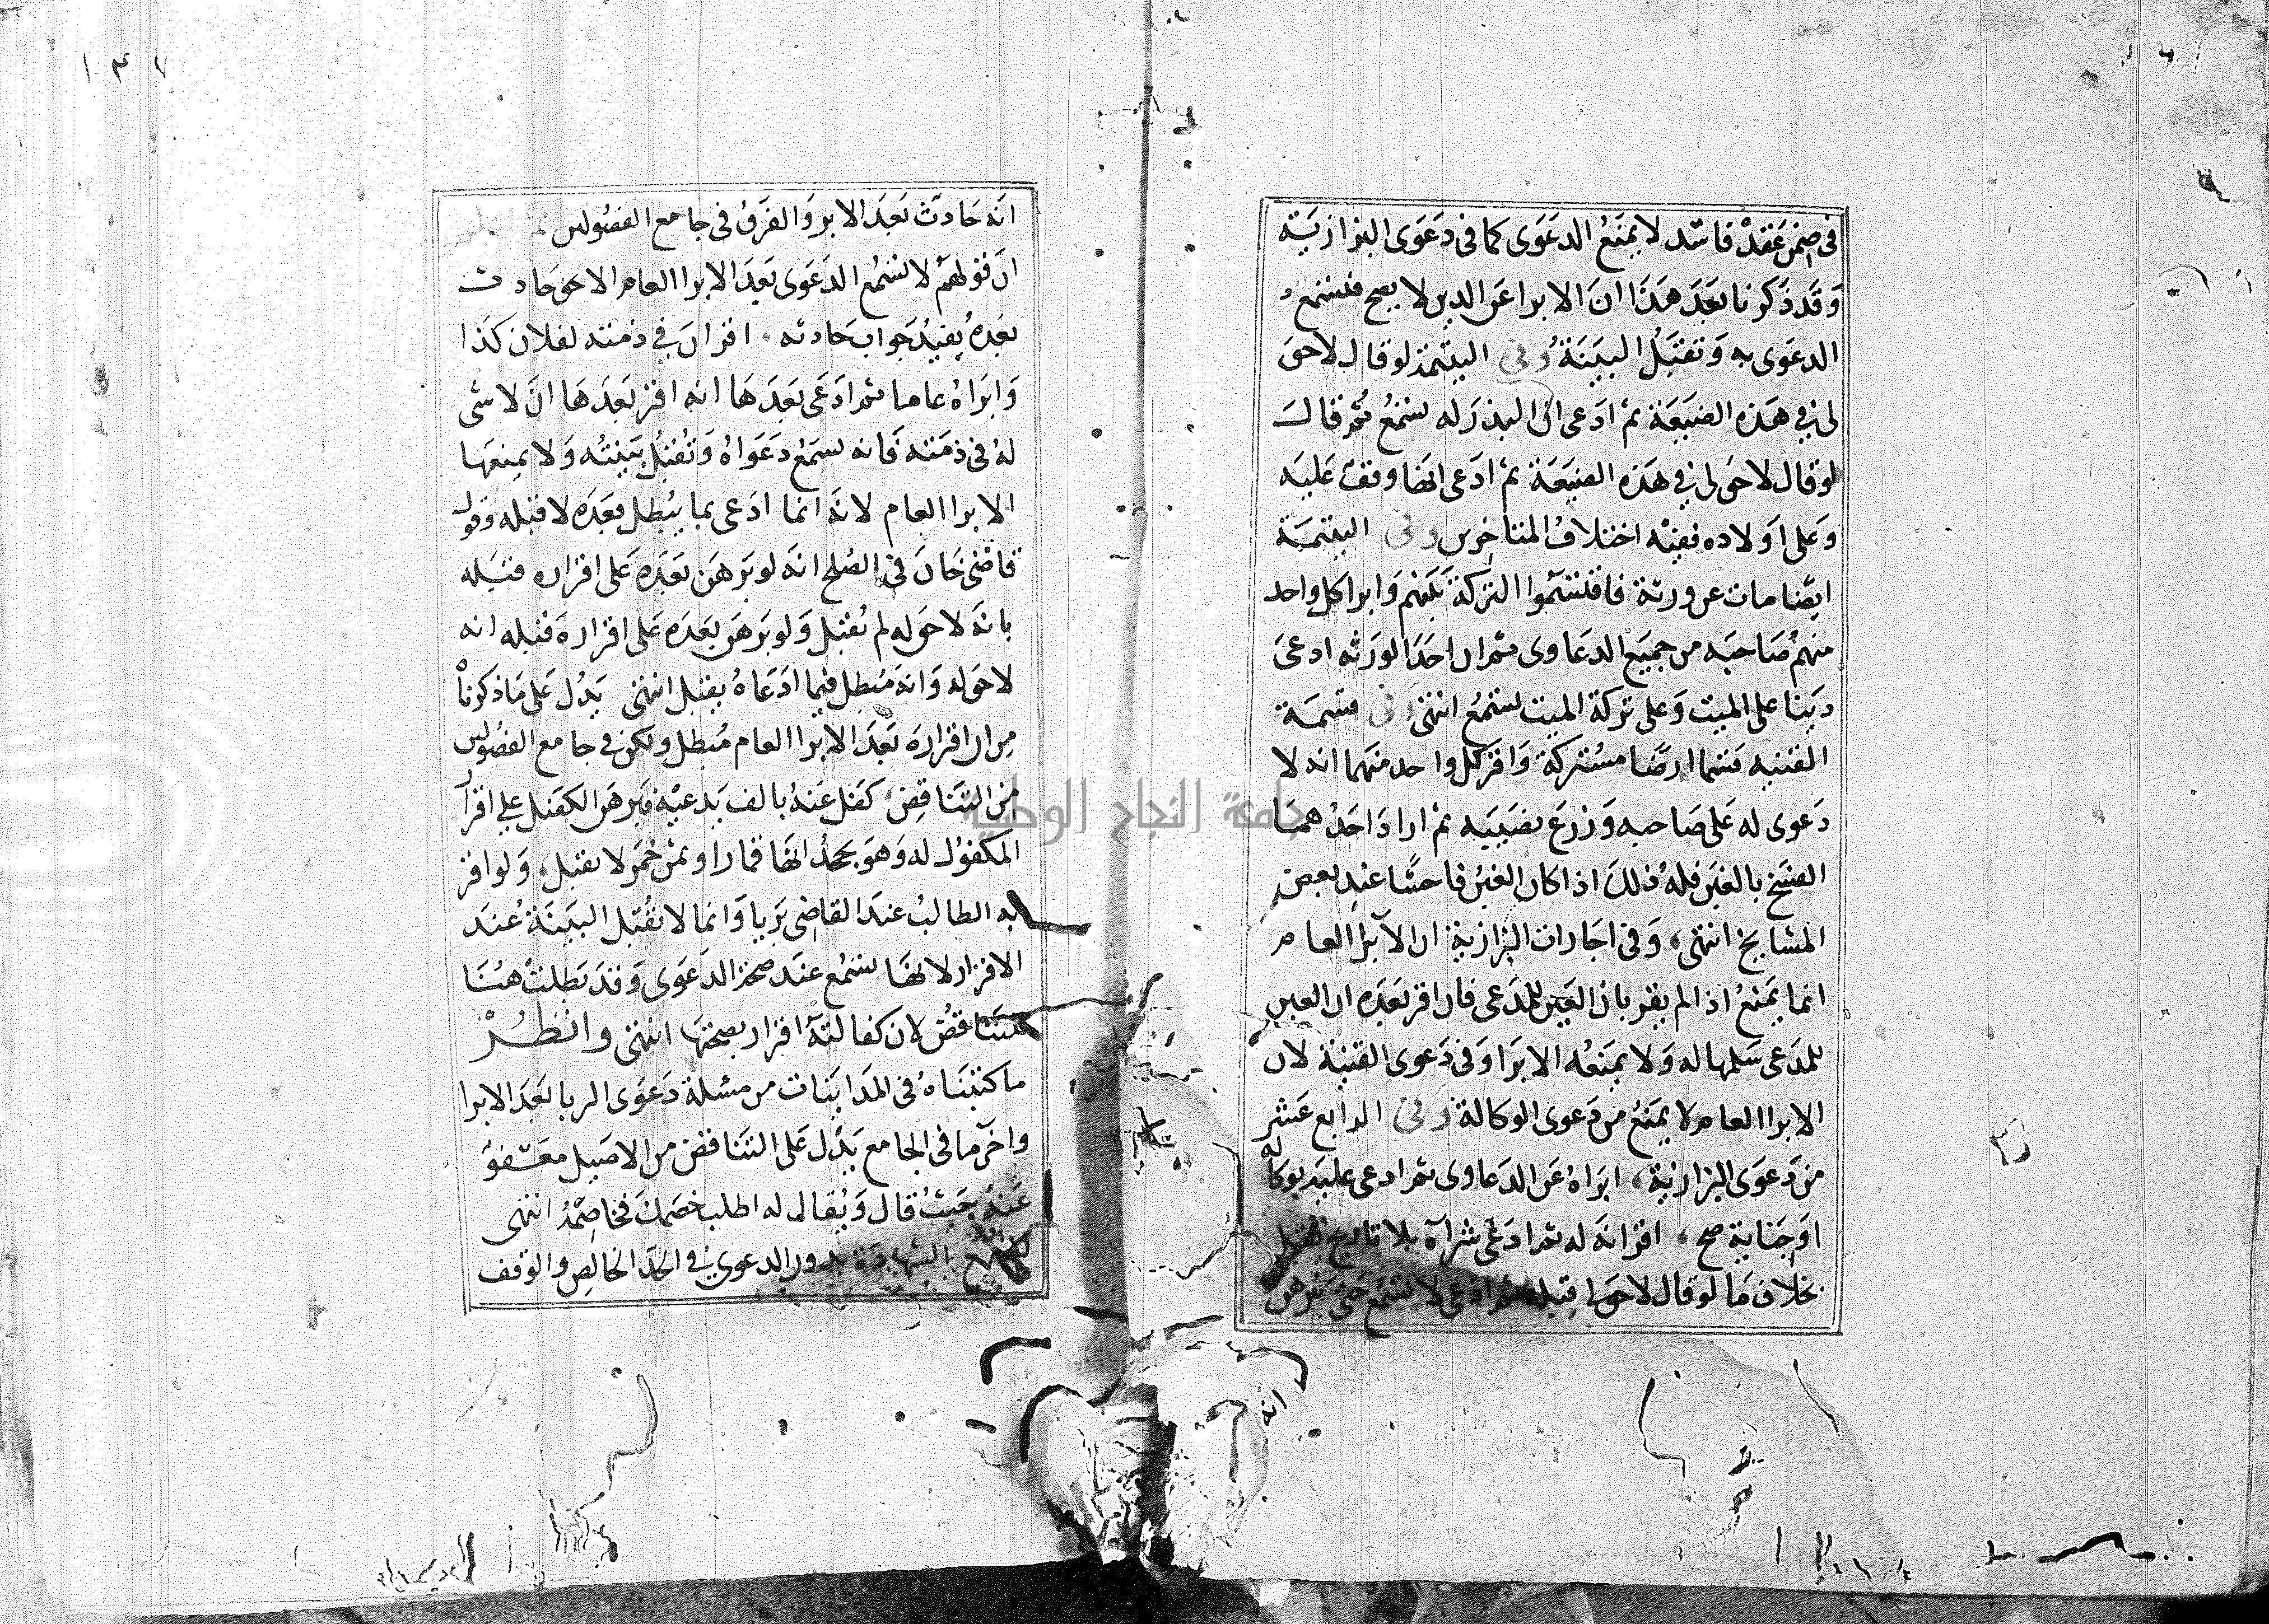 في ضمن عقد فاسد لا يمنع الدعوى كما في دعوى البزازية
وقد ذكرنا بعد هذا ان الابرا عن الدين لا يصح فتسمع
الدعوى به وتقبل البينة وفي اليتيمة لو قال لا حق
لي في هذه الضيعة ثم ادعى ان البذر له تسمع ثم قال
لو قال لا حق لي في هذه الضيعة ثم ادعى انها وقف عليه
وعلى اولاده ففيه اختلاف المتاخرين وفي اليتيمة
ايضا مات عن ورثة فاقتسموا التركة بينهم وابرا كل واحد
منهم صاحبه من جميع الدعاوى ثم ان احد الورثه ادعى
دينا على الميت وعلى تركة الميت تسمع انتهى وفي قسمة
القنيه قسما ارضا مشتركة واقر كل واحد منهما انه لا
دعوى له على صاحبه وزرع نصيبه ثم اراد احدهما
الفسخ بالغبن فله ذلك اذا كان الغبن فاحشا عند بعض
المشايخ انتهى وفي اجارات البزازية ان الابرا العام
انما يمنع اذا لم يقر بان العين للمدعى فان اقر بعده ان العين
للمدعى سلمها له ولا يمنعه الابرا وفي دعوى القنية لان
الابرا العام لا يمنع من دعوى الوكالة وفي الرابع عشر
من دعوى البزازية ابراه عن الدعاوى ثم ادعى عليه بوكالة
او جناية صح اقر انه له ثم ادعى شراه بلا تاريخ تقبل
بخلاف ما لو قال لا حق لي قبله ثم ادعى لا تسمع حتى يبرهن
انه
انه حادث بعد الابر والفرق في جامع الفصولين
ان قولهم لا تسمع الدعوى بعد الابرا العام الا حق حادث
بعده يفيد جواب حادثه اقر ان في ذمته لفلان كذا
وابراه عاما ثم ادعى بعدها انه اقر بعدها ان لا شى
له في ذمته فانه تسمع دعواه وتقبل بينته ولا يمنعها
الابرا العام لانه انما ادعى بما يبطل بعده لا قبله وقول
قاضى خان في الصلح انه لو برهن بعده على اقراره قبله
بانه لا حق له لم تقبل ولو برهن بعده على اقراره قبله انه
لا حق له وانه مبطل فيما ادعاه يقبل انتهى يدل على ما ذكرنا
من ان اقراره بعد الابرا العام مبطل ولكن في جامع الفصولين
من التناقض كفل عنه بالف يدعيه فبرهن الكفيل علي اقرار
المكفول له وهو يجحد انها قمار او ثمن خمر لا تقبل ولو اقر
به الطالب عند القاضى بريا وانما لا تقبل البينة عند
الاقرار لانها تسمع عند صحة الدعوى وقد بطلت هنا
للتناقض لان كفالته اقرار بصحتها انتهى وانظر
ما كتبناه في المداينات من مسئلة دعوى الربا بعد الابرا
واخر ما في الجامع يدل على التناقض من الاصيل معفو
عنه حيث قال ويقال له اطلب خصمك فخاصمه انتهى
بالشهادة بدون الدعوى في الحد الخالص والوقف
جامعة النجاح الوطنية